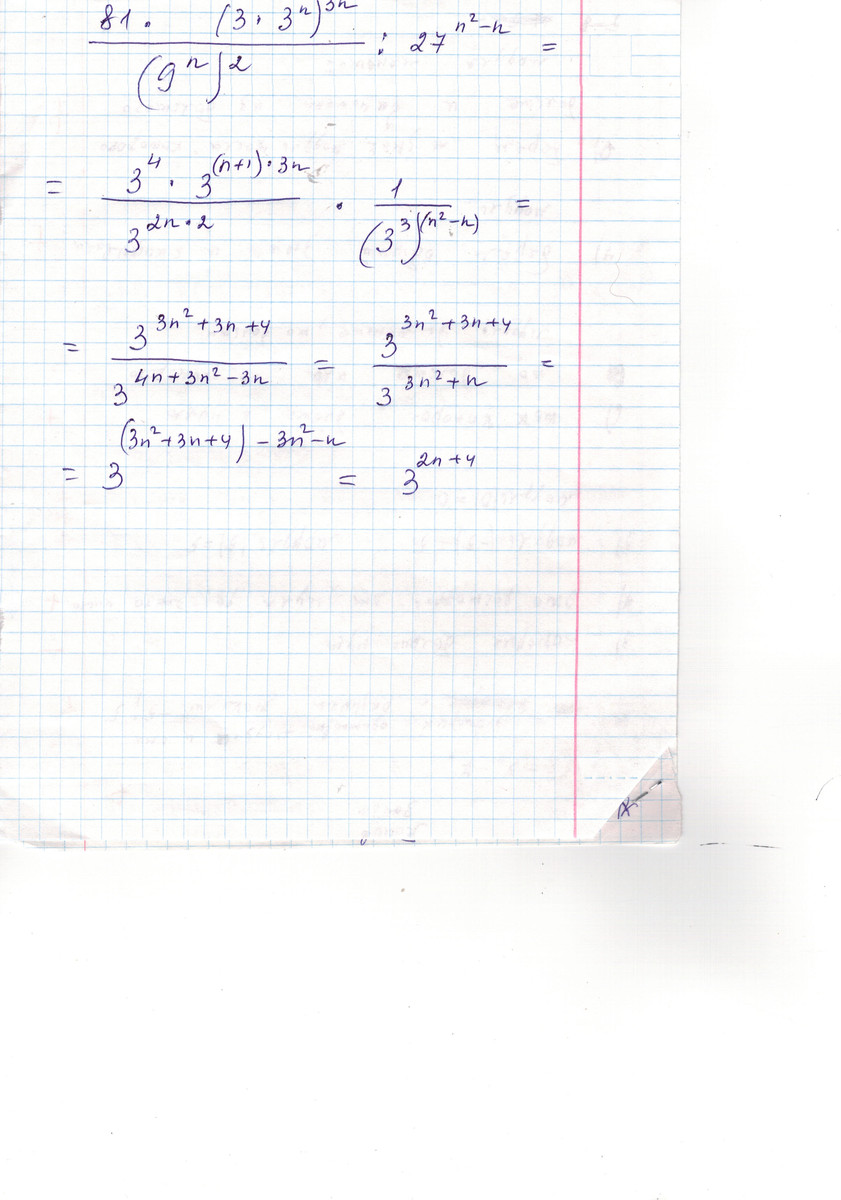 81 · (3 · 3^n)^3n
/ (9^n)^2 : 27^(n²-n) =
= 3^4 · 3^((n+1)·3n) / 3^(2n·2) · 1 / (3^3)^(n²-n) =
= 3^(3n²+3n+4) / 3^(4n+3n²-3n) = 3^(3n²+3n+4) / 3^(3n²+n) =
= 3^((3n²+3n+4)-3n²-n) = 3^(2n+4)